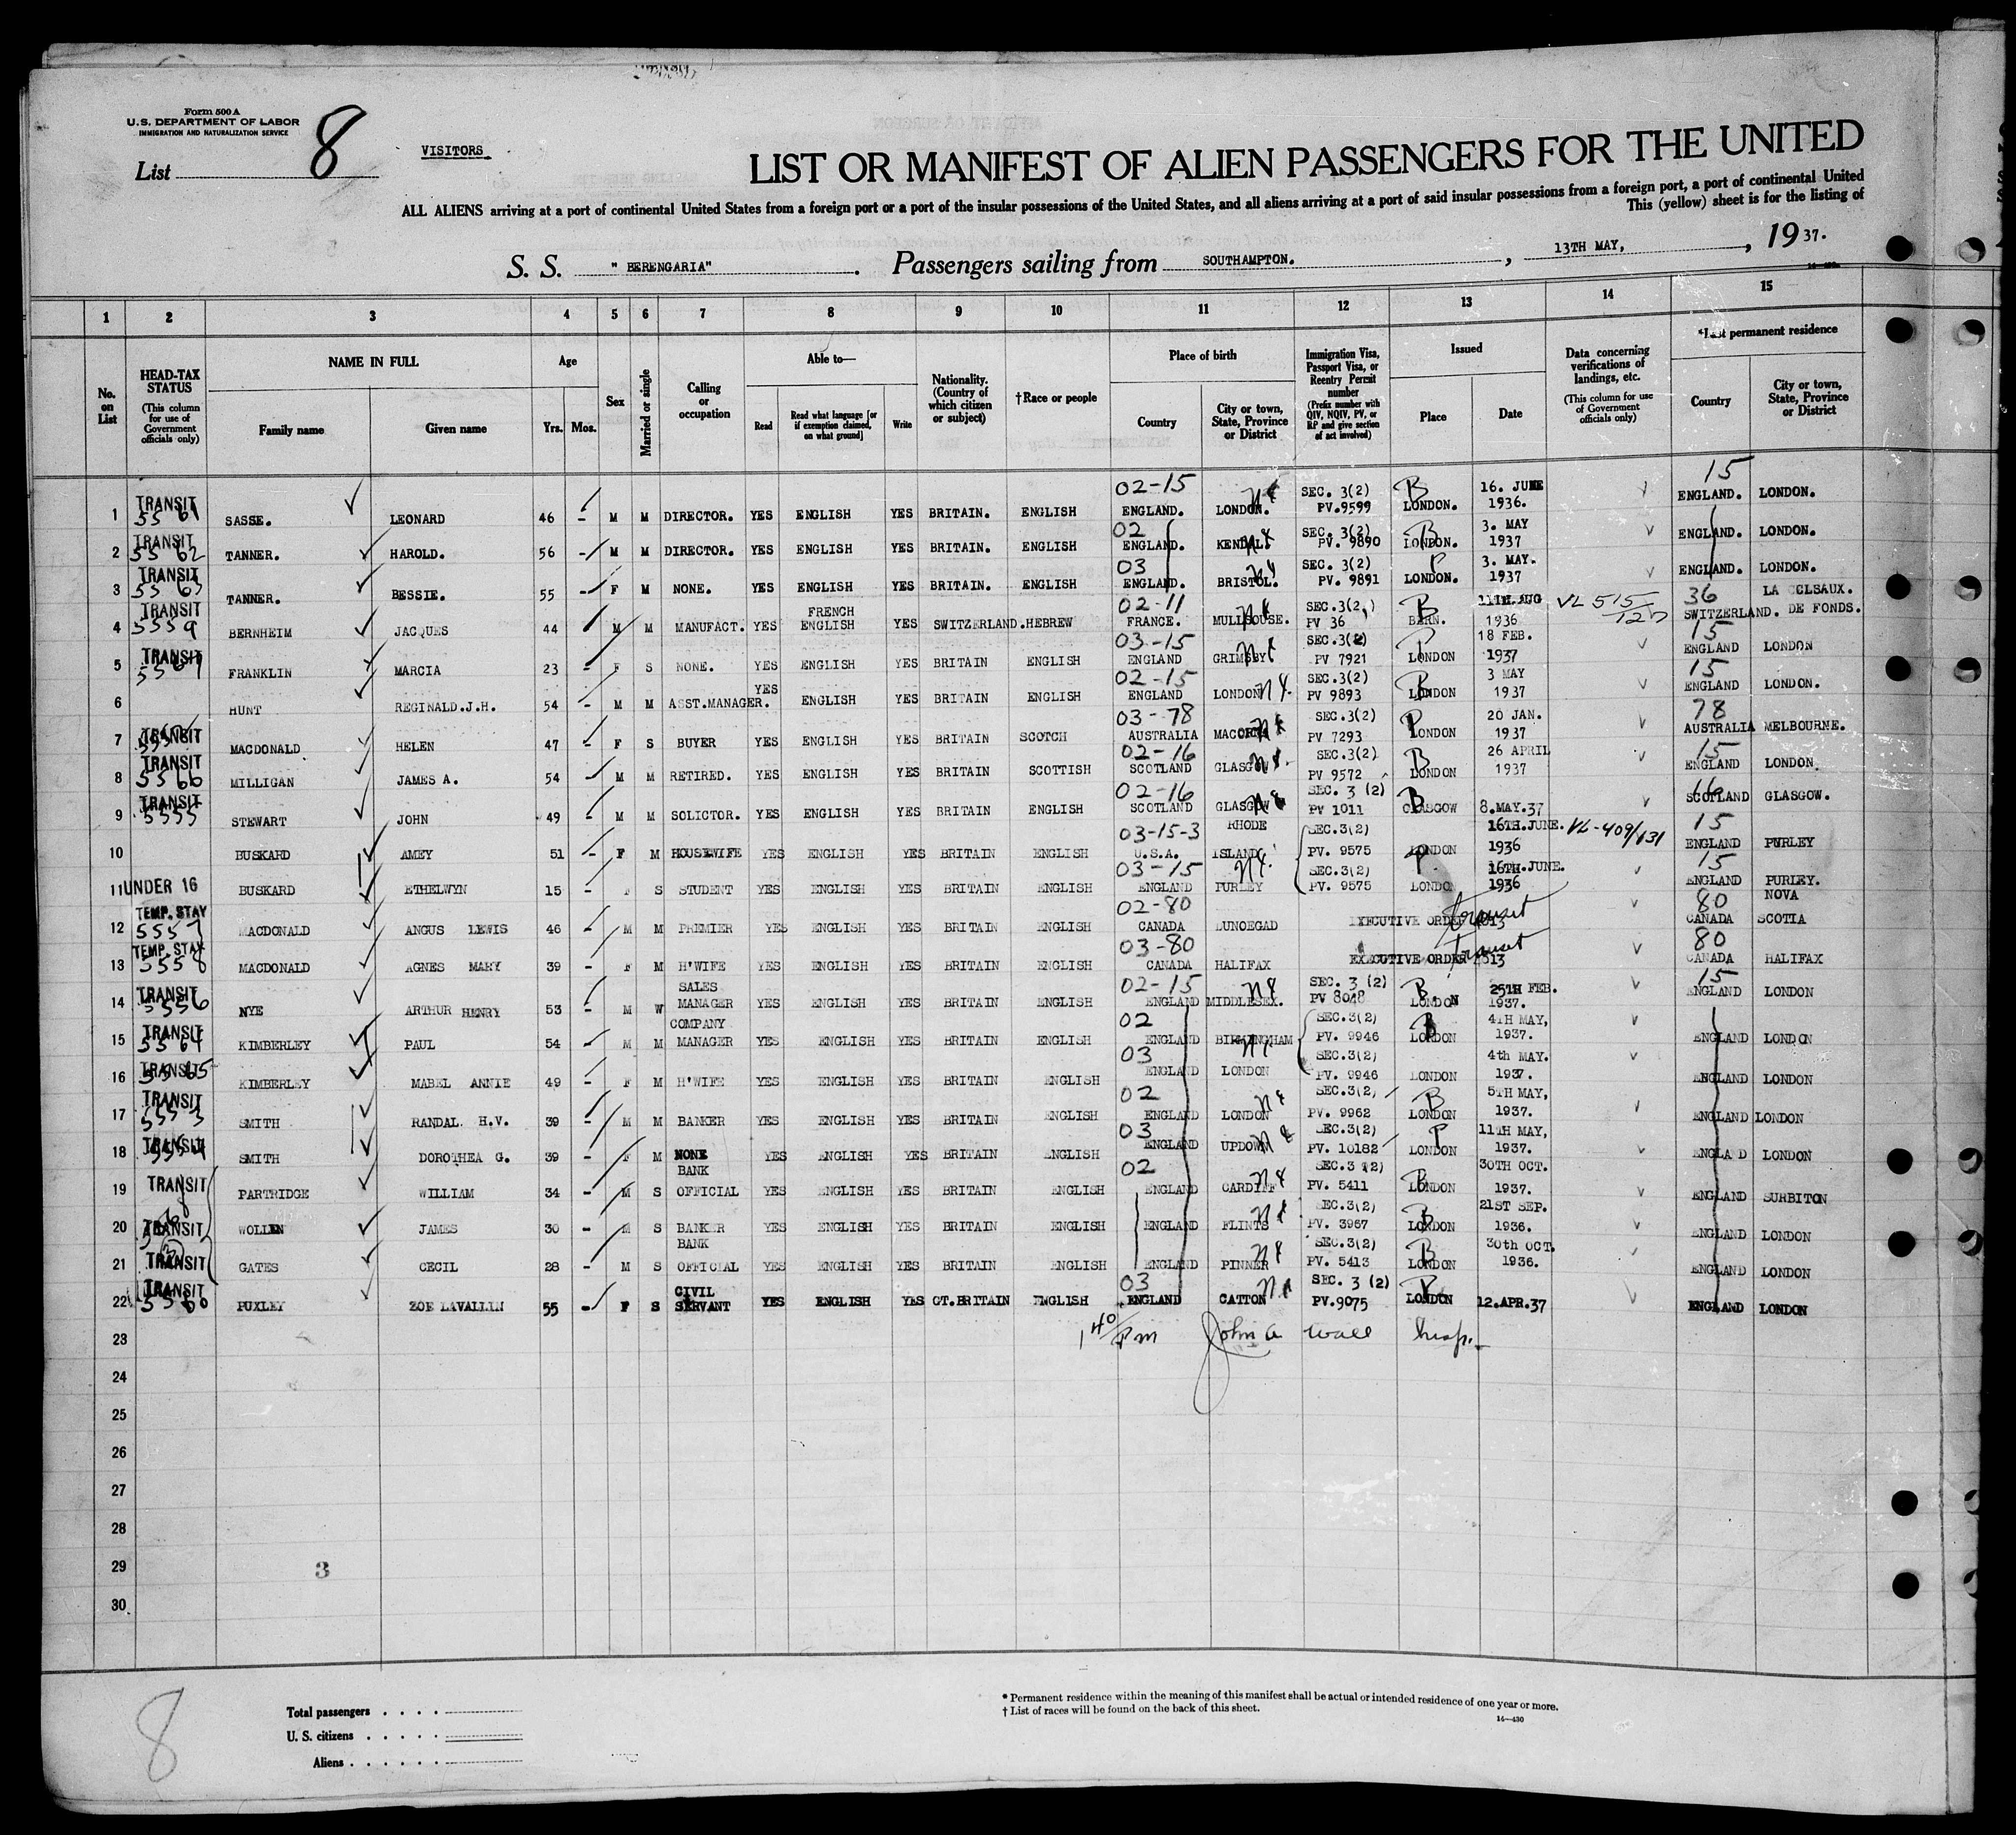 Form 500 A
U.S. DEPARTMENT OF LABOR
IMMIGRATION AND NATURALIZATION SERVICE
List 8
VISITORS.
LIST OR MANIFEST OF ALIEN PASSENGERS FOR THE UNITED
ALL ALIENS arriving at a port of continental United States from a foreign port or a port of the insular possessions of the United States, and all aliens arriving at a port of said insular possessions from a foreign port, a port of continental United
This (yellow) sheet is for the listing of
S. S. " BERENGARIA" . Passengers sailing from SOUTHAMPTON. , 13TH MAY, , 19 37.
1 2 3 4 5 6 7 8 9 10 11 12 13 14 15
No. on List
HEAD-TAX STATUS (This column for use of Government officials only)
NAME IN FULL
Family name Given name
Age
Yrs. Mos.
Sex
Married or single
Calling or occupation
Able to—
Read Read what language [or if exemption claimed, on what ground] Write
Nationality. (Country of which citizen or subject)
†Race or people
Place of birth
Country City or town, State, Province or District
Immigration Visa, Passport Visa, or Reentry Permit number (Prefix number with QIV, NQIV, PV, or RP and give section of act involved)
Issued
Place Date
Data concerning verifications of landings, etc. (This column for use of Government officials only)
*Last permanent residence
Country City or town, State, Province or District
1 TRANSIT 5561 SASSE. LEONARD 46 - M M DIRECTOR. YES ENGLISH YES BRITAIN. ENGLISH 02-15 ENGLAND. LONDON. SEC. 3(2) PV.9599 LONDON. 16. JUNE 1936. 15 ENGLAND. LONDON.
2 TRANSIT 5562 TANNER. HAROLD. 56 - M M DIRECTOR. YES ENGLISH YES BRITAIN. ENGLISH 02 ENGLAND. KENDAL. SEC. 3(2) PV. 9890 LONDON. 3. MAY 1937 ENGLAND. LONDON.
3 TRANSIT 5563 TANNER. BESSIE. 55 - F M NONE. YES ENGLISH YES BRITAIN. ENGLISH 03 ENGLAND. BRISTOL. SEC. 3(2) PV. 9891 LONDON. 3. MAY. 1937 ENGLAND. LONDON.
4 TRANSIT 5559 BERNHEIM JACQUES 44 M M MANUFACT. YES FRENCH ENGLISH YES SWITZERLAND. HEBREW 02-11 FRANCE. MULHOUSE. SEC.3(2,) PV 36 BERN. 11TH.AUG 1936 VL 515/120 36 SWITZERLAND. LA CELSAUX. DE FONDS.
5 TRANSIT FRANKLIN MARCIA 23 - F S NONE. YES ENGLISH YES BRITAIN ENGLISH 03-15 ENGLAND GRIMSBY SEC.3(2) PV 7921 LONDON 18 FEB. 1937 15 ENGLAND LONDON
6 HUNT REGINALD.J.H. 54 - M M ASST.MANAGER. YES ENGLISH YES BRITAIN ENGLISH 02-15 ENGLAND LONDON SEC.3(2) PV 9893 LONDON 3 MAY 1937 15 ENGLAND LONDON.
7 TRANSIT MACDONALD HELEN 47 - F S BUYER YES ENGLISH YES BRITAIN SCOTCH 03-78 AUSTRALIA SEC.3(2) PV 7293 LONDON 20 JAN. 1937 78 AUSTRALIA MELBOURNE.
8 TRANSIT 5566 MILLIGAN JAMES A. 54 - M M RETIRED. YES ENGLISH YES BRITAIN SCOTTISH 02-16 SCOTLAND GLASGOW. SEC.3(2) PV 9572 LONDON 26 APRIL 1937 15 ENGLAND LONDON
9 TRANSIT 5555 STEWART JOHN 49 - M M SOLICTOR. YES ENGLISH YES BRITAIN ENGLISH 02-16 SCOTLAND GLASGOW SEC. 3 (2) PV 1011 GLASGOW 8.MAY.37 16 SCOTLAND GLASGOW.
10 BUSKARD AMEY 51 - F M HOUSEWIFE YES ENGLISH YES BRITAIN ENGLISH 03-15-3 U.S.A. RHODE ISLAND SEC.3(2) PV. 9575 LONDON 16TH.JUNE. 1936 VL-409/131 15 ENGLAND PURLEY
11 UNDER 16 BUSKARD ETHELWYN 15 - F S STUDENT YES ENGLISH YES BRITAIN ENGLISH 03-15 ENGLAND PURLEY SEC.3(2) PV. 9575 LONDON 16TH.JUNE. 1936 15 ENGLAND PURLEY.
12 TEMP. STAY 5557 MACDONALD ANGUS LEWIS 46 - M M PREMIER YES ENGLISH YES BRITAIN ENGLISH 02-80 CANADA DUNOEGAD EXECUTIVE ORDER 4813 transit 80 CANADA NOVA SCOTIA
13 TEMP. STAY 5558 MACDONALD AGNES MARY 39 - F M H'WIFE YES ENGLISH YES BRITAIN ENGLISH 03-80 CANADA HALIFAX EXECUTIVE ORDER 4813 transit 80 CANADA HALIFAX
14 TRANSIT 5556 NYE ARTHUR HENRY 53 - M W SALES MANAGER YES ENGLISH YES BRITAIN ENGLISH 02-15 ENGLAND MIDDLESEX. SEC. 3 (2) PV 8048 LONDON 25TH FEB. 1937. 15 ENGLAND LONDON
15 TRANSIT 5564 KIMBERLEY PAUL 54 - M M COMPANY MANAGER YES ENGLISH YES BRITAIN ENGLISH 02 ENGLAND BIRMINGHAM SEC.3(2) PV. 9946 LONDON 4TH MAY, 1937. ENGLAND LONDON
16 TRANSIT 5565 KIMBERLEY MABEL ANNIE 49 - F M H'WIFE YES ENGLISH YES BRITAIN ENGLISH 03 ENGLAND LONDON SEC.3(2) PV. 9946 LONDON 4th MAY. 1937. ENGLAND LONDON
17 TRANSIT 5553 SMITH RANDAL H.V. 39 - M M BANKER YES ENGLISH YES BRITAIN ENGLISH 02 ENGLAND LONDON SEC.3(2) PV. 9962 LONDON 5TH MAY, 1937. ENGLAND LONDON
18 TRANSIT 5554 SMITH DOROTHEA G. 39 - F M NONE YES ENGLISH YES BRITAIN ENGLISH 03 ENGLAND UPDOWN SEC.3(2) PV. 10182 LONDON 11TH MAY, 1937. ENGLAND LONDON
19 TRANSIT PARTRIDGE WILLIAM 34 - M S BANK OFFICIAL YES ENGLISH YES BRITAIN ENGLISH 02 ENGLAND CARDIFF SEC.3 (2) PV. 5411 LONDON 30TH OCT. 1937. ENGLAND SURBITON
20 TRANSIT WOLLEN JAMES 30 - M S BANKER YES ENGLISH YES BRITAIN ENGLISH ENGLAND FLINTS SEC.3(2) PV. 3967 LONDON 21ST SEP. 1936. ENGLAND LONDON
21 TRANSIT GATES CECIL 28 - M S BANK OFFICIAL YES ENGLISH YES BRITAIN ENGLISH ENGLAND PINNER SEC.3(2) PV. 5413 LONDON 30th OCT. 1936. ENGLAND LONDON
22 TRANSIT 5560 PUXLEY ZOE LAVALLIN 55 - F S CIVIL SERVANT YES ENGLISH YES GT.BRITAIN ENGLISH 03 ENGLAND CATTON SEC. 3 (2) PV.9075 LONDON 12.APR.37 ENGLAND LONDON
23 1 40/PM John A Wall Insp.
24
25
26
27
28
29 3
30
8
Total passengers . . . .
U. S. citizens . . . . .
Aliens . . . . . .
* Permanent residence within the meaning of this manifest shall be actual or intended residence of one year or more.
† List of races will be found on the back of this sheet.
14—430